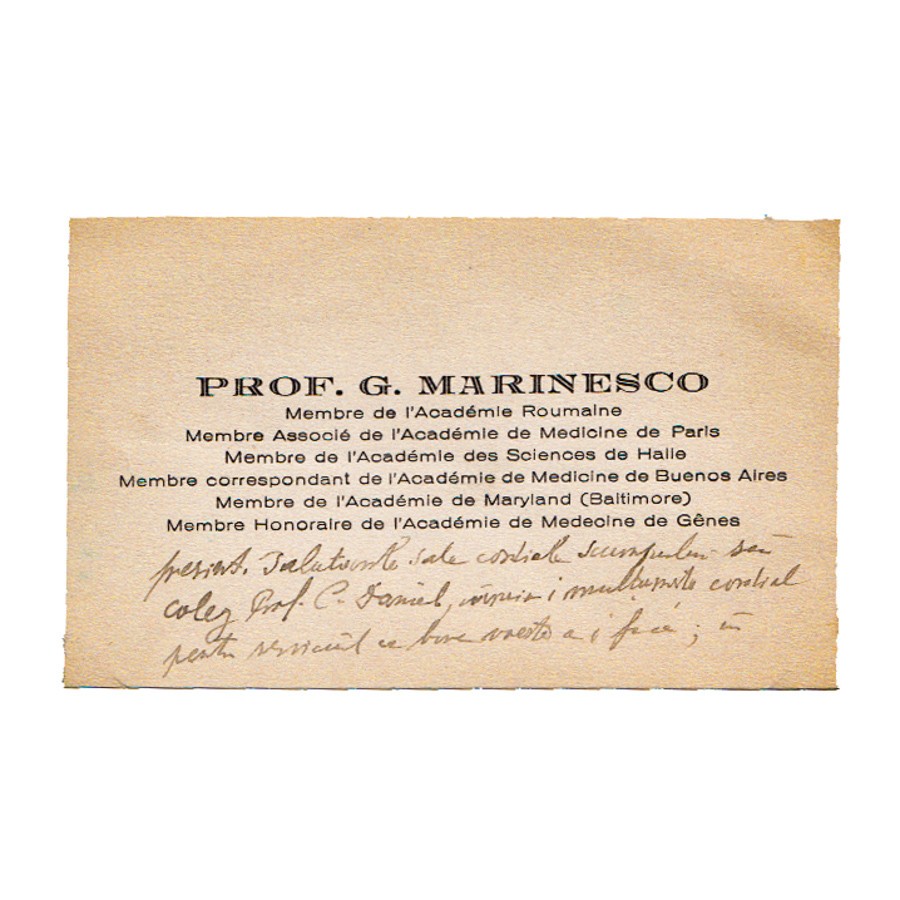 PROF. G. MARINESCO
Membre de l'Académie Roumaine
Membre Associé de l'Académie de Medicine de Paris
Membre de l'Académie des Sciences de Halle
Membre correspondant de l'Académie de Medicine de Buenos Aires
Membre de l'Académie de Maryland (Baltimore)
Membre Honoraire de l'Académie de Medecine de Gênes
salutările sale cordiale scumpului său
coleg Prof. C. Daniel, căruia i mulțumește cordial
pentru serviciul ce bine voește a i face; în